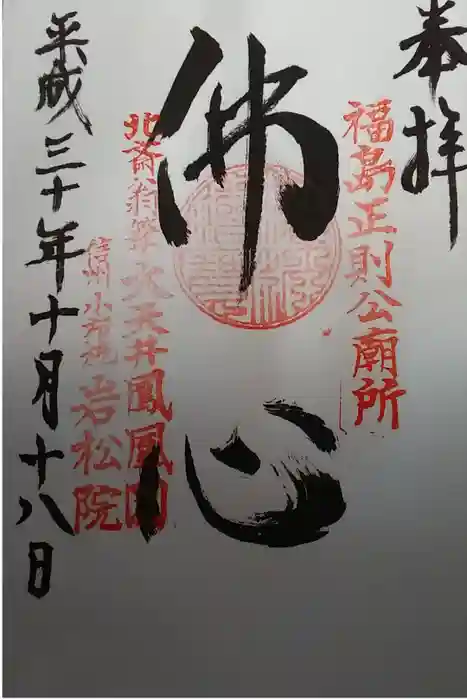 奉拝
福島正則公廟所
佛心
北斎翁筆大天井鳳凰図
信州小布施岩松院
平成三十年十月十八日